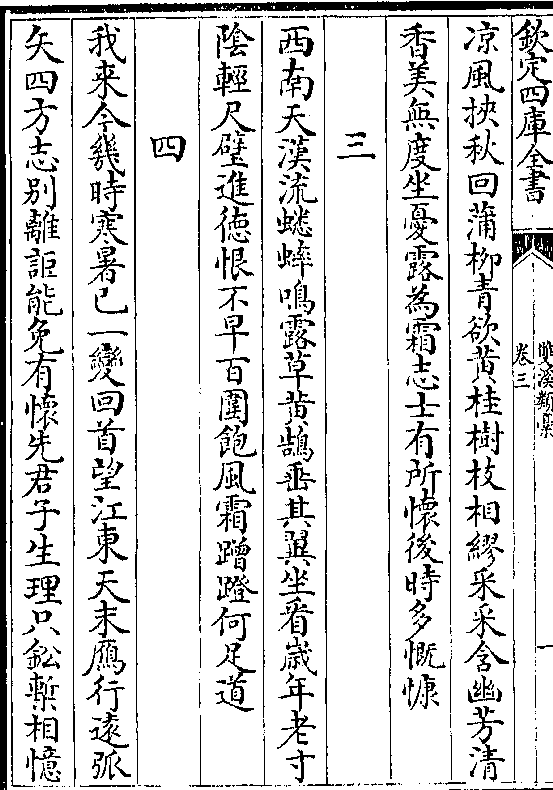 欽定四庫全書
雙溪類稾
卷三
一
凉風抰秋回蒲柳青欲黄桂樹枝相繆采采含幽芳清
香美無度坐憂露為霜志士有所懷後時多慨慷
三
西南天漢流蟋蟀鳴露草黄鵠垂其翼坐看歳年老寸
陰輕尺璧進徳恨不早百圍飽風霜蹭蹬何足道
四
我来今幾時寒暑已一變回首望江東天末鴈行逺弧
矢四方志别離詎能免有懷先君子生理只鈆槧相憶